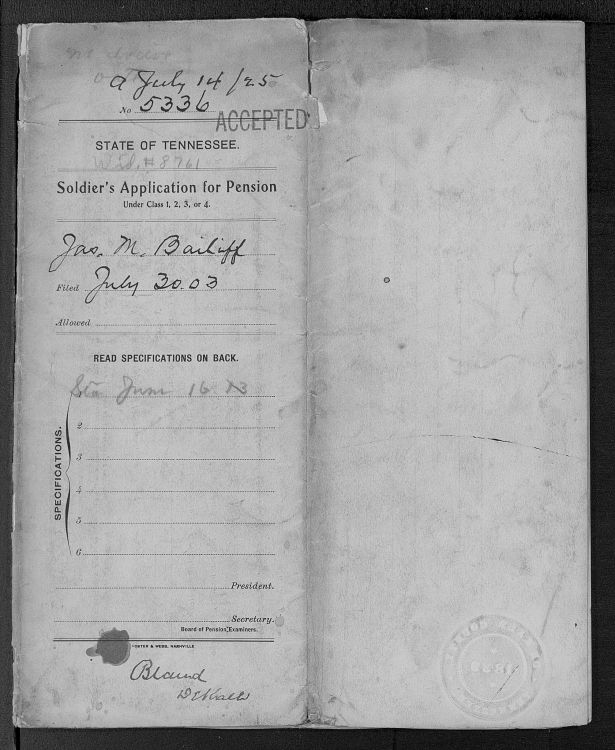 July 14/25
No 5336
ACCEPTED
STATE OF TENNESSEE.
Wid. #8761
Soldier's Application for Pension
Under Class 1, 2, 3, or 4.
Jas. M. Bailiff
Filed July 30 03
Allowed
READ SPECIFICATIONS ON BACK.
June 16
SPECIFICATIONS.
2
3
4
5
6
President.
Secretary.
Board of Pension Examiners.
FOSTER & WEBB, NASHVILLE
DeKalb